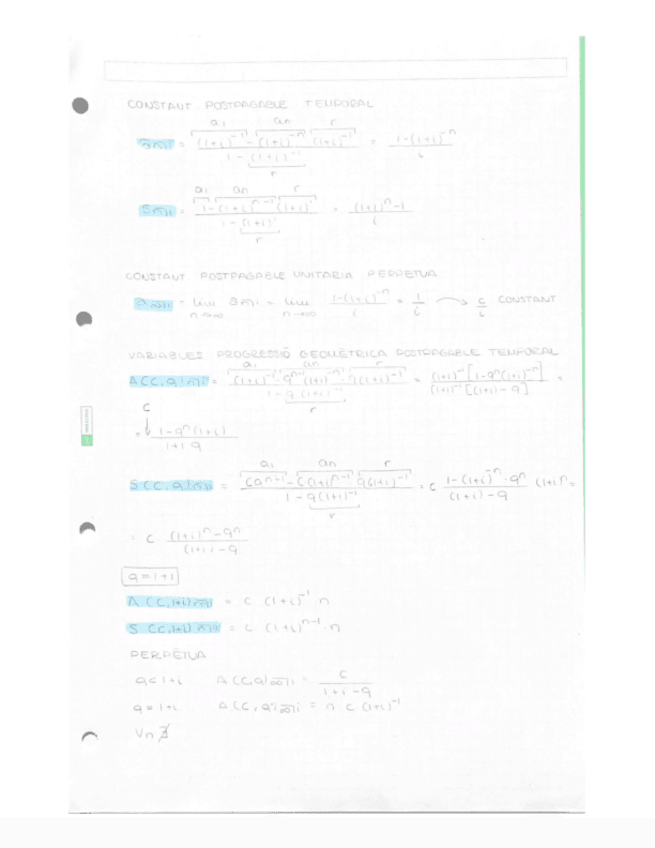 CONSTANT POSTPAGABLE TEMPORAL
a1 an r
an̅|i = (1+i)^-1 - (1+i)^-n (1+i)^-1 / 1 - (1+i)^-1 = 1-(1+i)^-n / i
r
a1 an r
Sn̅|i = 1-(1+i)^n-1 (1+i)^1 / 1-(1+i)^1 = (1+i)^n-1 / i
r
CONSTANT POSTPAGABLE UNITARIA PERPETUA
a∞̅|i = lim n→∞ an̅|i = lim n→∞ 1-(1+i)^-n / i = 1/i → c/i CONSTANT
VARIABLES PROGRESSIÓ GEOMÈTRICA POSTPAGABLE TEMPORAL
a1 an r
A(C,q)n̅|i = (1+i)^-1 - q^n-1 (1+i)^-n · q(1+i)^-1 / 1-q(1+i)^-1 = (1+i)^-1 [1-q^n(1+i)^-n] / (1+i)^-1 [(1+i)-q] =
r
C
= ↓ 1-q^n(1+i) / 1+i q
a1 an r
S(C,q)n̅|i = / 1-q(1+i)^-1 = c 1-(1+i)^-n · q^n / (1+i)-q (1+i)^n =
r
= c (1+i)^n-q^n / (1+i)-q
q=1+i
A(C,1+i)n̅|i = c (1+i)^-1 n
S(C,1+i)n̅|i = c (1+i)^n-1 · n
PERPÈTUA
q<1+i A(C,q)∞̅|i = c / 1+i-q
q=1+i A(C,q)∞̅|i = n c (1+i)^-1
Vn ∄